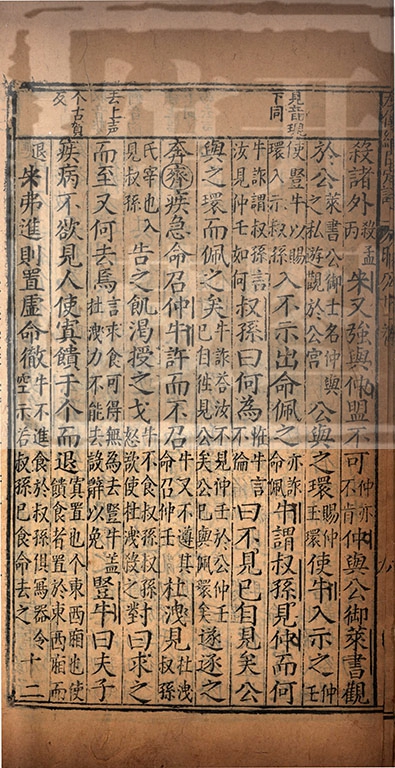 殺諸外殺孟丙牛又強與仲盟不可仲亦不肯仲與公御萊書觀
於公萊書公御士名仲與之私游觀於公宮公與之環賜仲玉環使牛入示之仲壬
見音現下同
使豎牛以賜環入示叔孫入不示出命佩之亦詐命佩牛謂叔孫見仲而何
牛詐謂叔孫汝見仲壬如何叔孫曰何為怪牛言不倫曰不見已自見矣公
與之環而佩之矣牛詐荅汝不見仲壬於公仲壬已自往見公矣公已與佩環矣遂逐之
奔齊疾急命召仲牛許而不召牛又不遵其命召仲壬杜洩見杜洩叔孫
氏宰也入見叔孫告之飢渴授之戈牛不食叔孫叔孫怒欲使杜洩殺之對曰求之
去上声
而至又何去焉言求食可得無為去豎牛盖杜洩力不能去設辭以免豎牛曰夫子
个古賀反
疾病不欲見人使寘饋于个而退寘置也个東西廂也使饋食者置於東西廂而
退牛弗進則置虛命徹牛不進食於叔孫俱寫器令空示若叔孫已食命去之十二